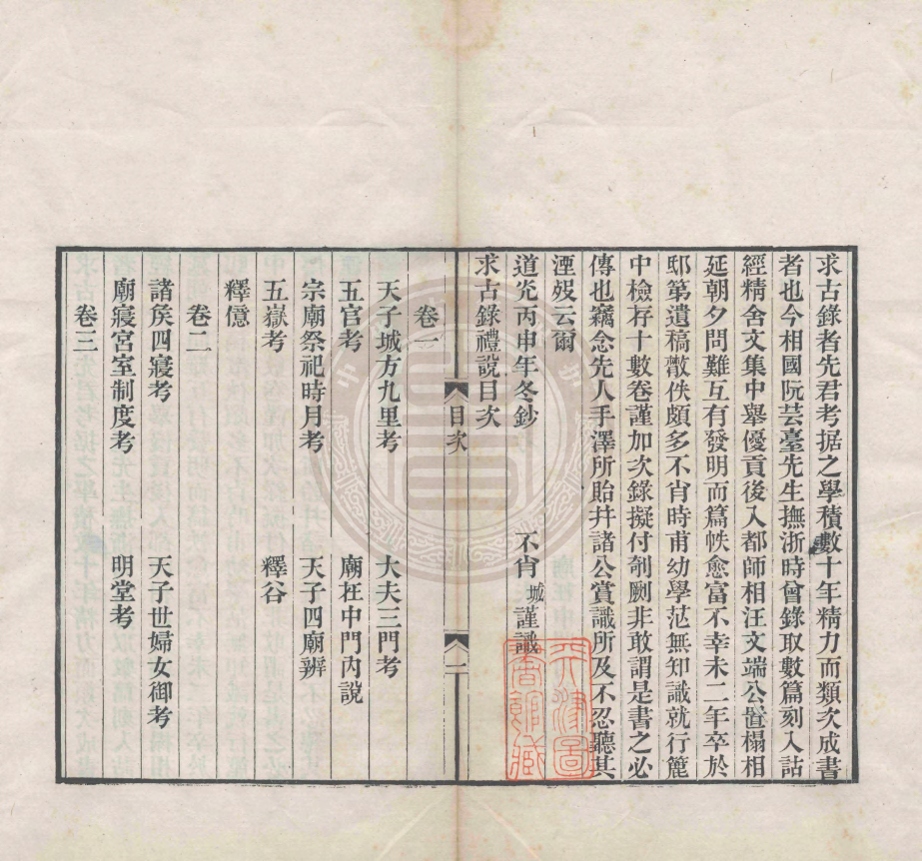 求古錄者先君考据之學積數十年精力而類次成書
者也今相國阮芸臺先生撫浙時曾錄取數篇刻入詁
經精舍文集中舉優貢後入都師相汪文端公嘗榻相
延朝夕問難互有發明而篇帙愈富不幸未二年卒於
邸第遺稿散佚頗多不肖時甫幼學茫無知識就行篋
中檢存十數卷謹加次錄擬付剞劂非敢謂是書之必
傳也竊念先人手澤所貽并諸公賞識所及不忍聽其
湮歿云爾
道光丙申年冬鈔 不肖城謹識
求古錄禮說目次
目次
一
卷一
天子城方九里考 大夫三門考
五官考 廟在中門內說
宗廟祭祀時月考 天子四廟辨
五嶽考 釋谷
釋億
卷二
諸矦四寢考 天子世婦女御考
廟寢宮室制度考 明堂考
卷三
天津圖書館藏